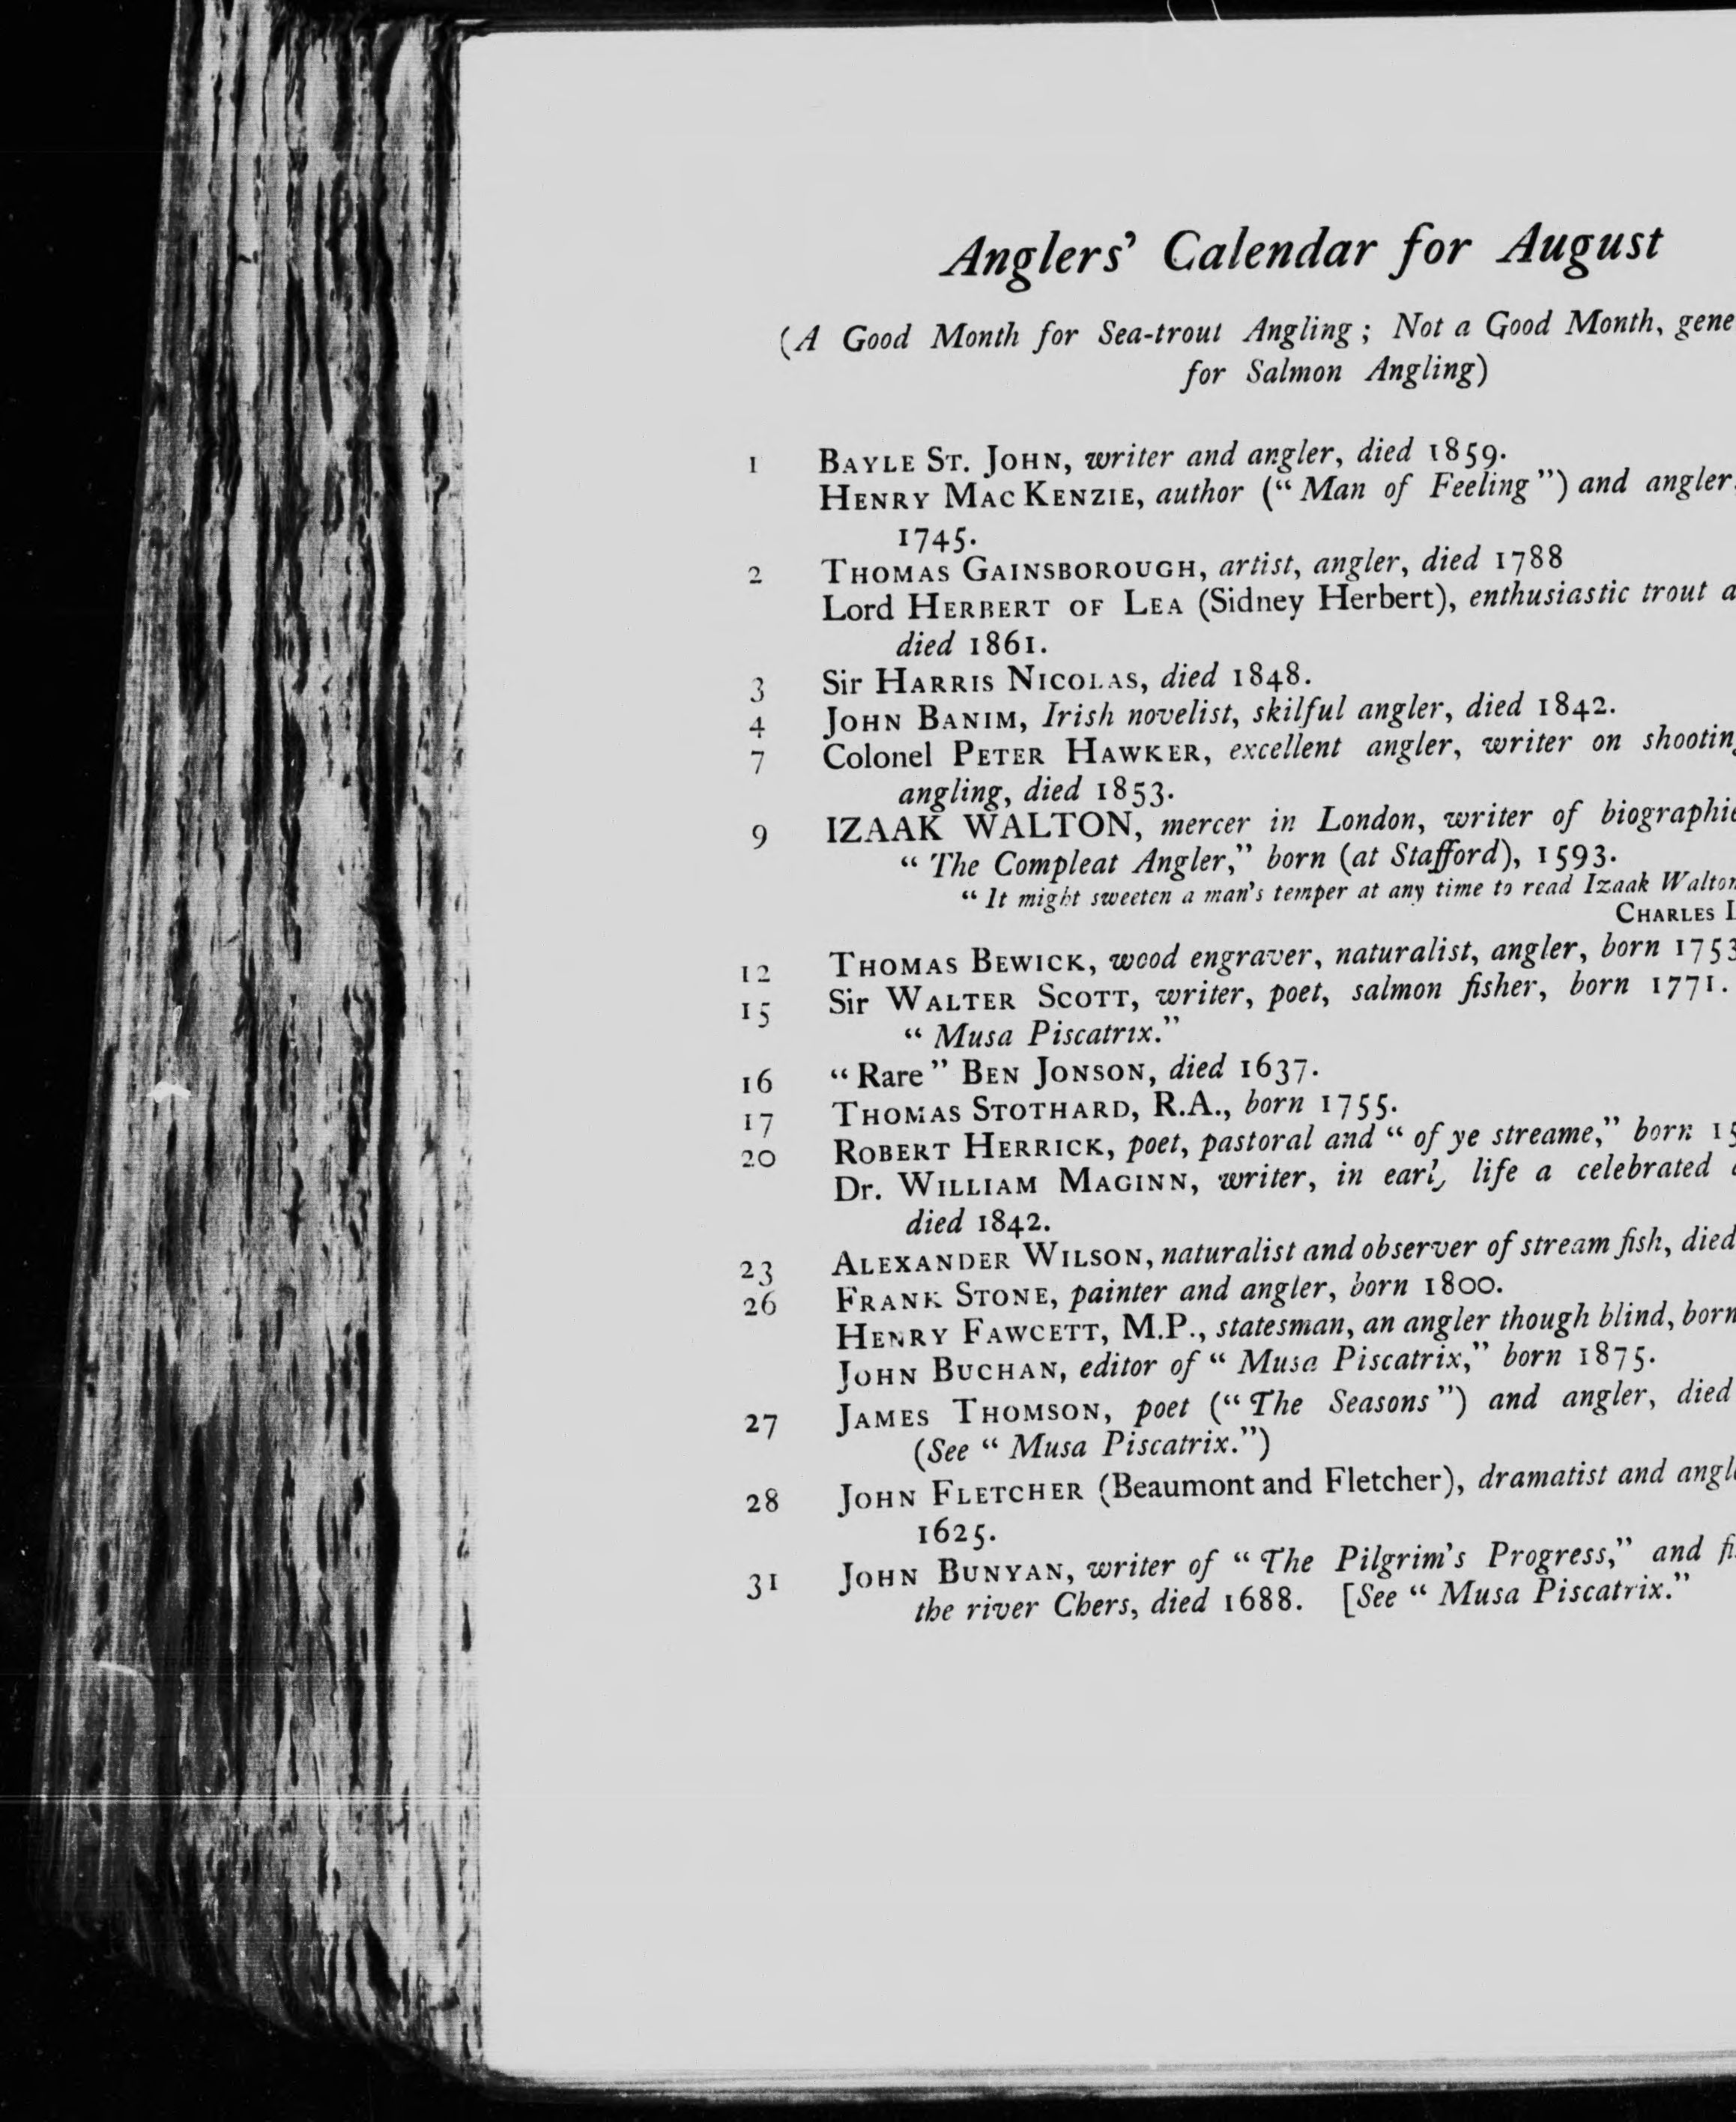 Anglers’ Calendar for August
(A Good Month for Sea-trout Angling; Not a Good Month, gene
for Salmon Angling)
1 BAYLE ST. JOHN, writer and angler, died 1859.
HENRY MAC KENZIE, author (“Man of Feeling”) and angler,
1745.
2 THOMAS GAINSBOROUGH, artist, angler, died 1788
Lord HERBERT OF LEA (Sidney Herbert), enthusiastic trout a
died 1861.
3 Sir HARRIS NICOLAS, died 1848.
4 JOHN BANIM, Irish novelist, skilful angler, died 1842.
7 Colonel PETER HAWKER, excellent angler, writer on shooting
angling, died 1853.
9 IZAAK WALTON, mercer in London, writer of biographie
“The Compleat Angler,” born (at Stafford), 1593.
“It might sweeten a man’s temper at any time to read Izaak Walton
CHARLES L
12 THOMAS BEWICK, wood engraver, naturalist, angler, born 1753
15 Sir WALTER SCOTT, writer, poet, salmon fisher, born 1771.
“Musa Piscatrix.”
16 “Rare” BEN JONSON, died 1637.
17 THOMAS STOTHARD, R.A., born 1755.
20 ROBERT HERRICK, poet, pastoral and “of ye streame,” born 15
Dr. WILLIAM MAGINN, writer, in early life a celebrated
died 1842.
23 ALEXANDER WILSON, naturalist and observer of stream fish, died
26 FRANK STONE, painter and angler, born 1800.
HENRY FAWCETT, M.P., statesman, an angler though blind, born
JOHN BUCHAN, editor of “Musa Piscatrix,” born 1875.
27 JAMES THOMSON, poet (“The Seasons”) and angler, died
(See “Musa Piscatrix.”)
28 JOHN FLETCHER (Beaumont and Fletcher), dramatist and angle
1625.
31 JOHN BUNYAN, writer of “The Pilgrim’s Progress,” and fi
the river Chers, died 1688. [See “Musa Piscatrix.”